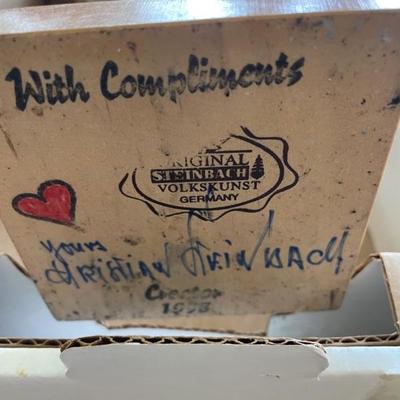 With Compliments
ORIGINAL
STEINBACH
VOLKSKUNST
GERMANY
yours
CHRISTIAN STEINBACH
Creator